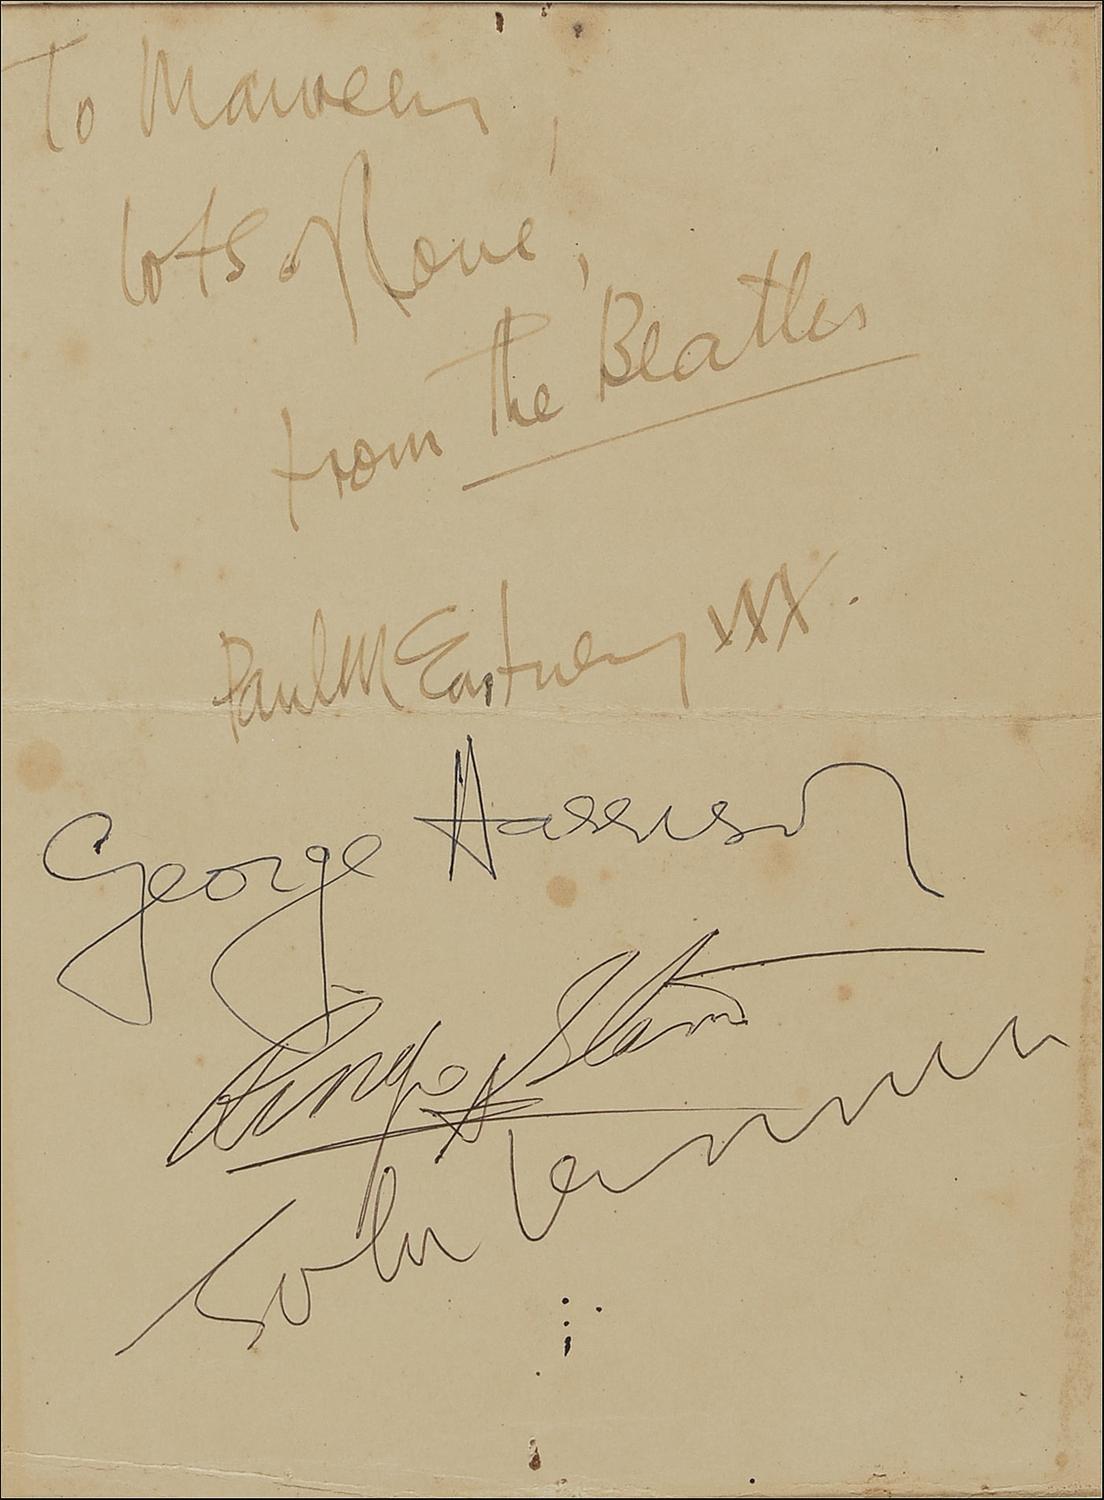 To Maureen,
lots of love,
from The Beatles
Paul McCartney XXX.
George Harrison
Ringo Starr
John Lennon